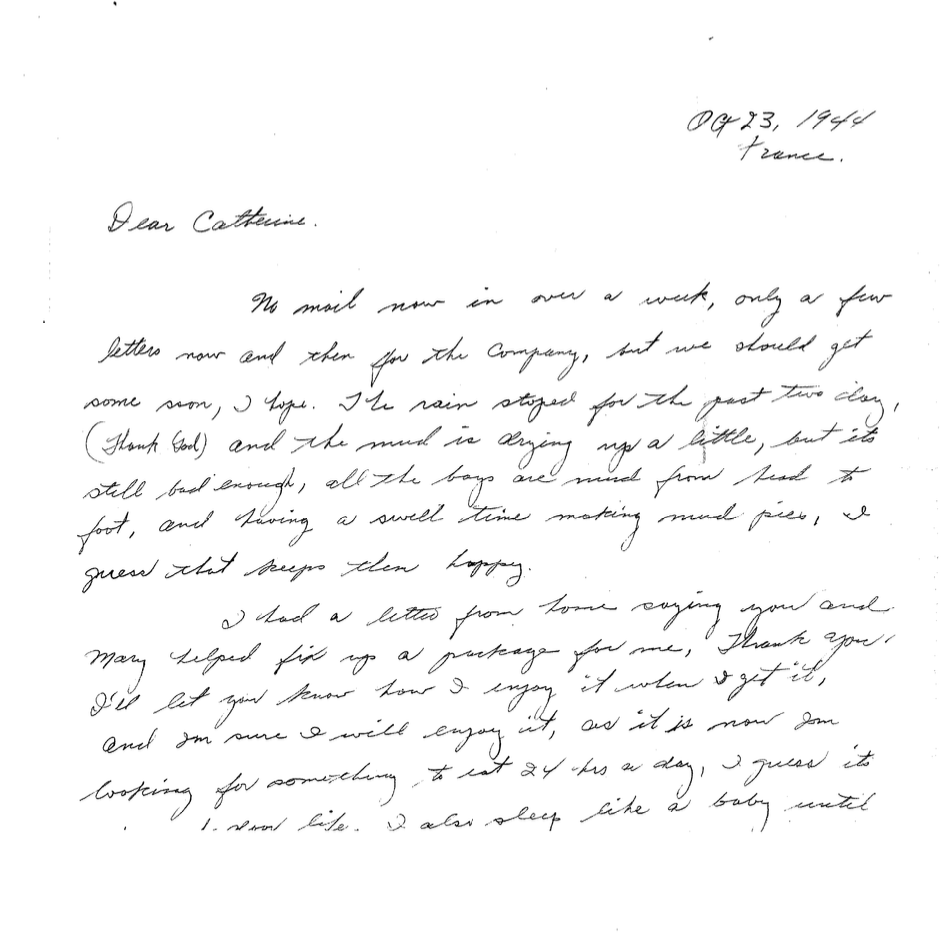 Oct 23, 1944
France.
Dear Catherine.
No mail now in over a week, only a few
letters now and then for the Company, but we should get
some soon, I hope. The rain stoped for the past two day,
(Thank God) and the mud is drying up a little, but its
still bad enough, all the boys are mud from head to
foot, and having a swell time making mud pies, I
guess that keeps then happy.
I had a letter from home saying you and
Mary helped fix up a package for me, Thank you,
I'll let you know how I enjoy it when I get it,
and Im sure I will enjoy it, as it is now Im
looking for something to eat 24 hrs a day, I guess its
life. I also sleep like a baby until